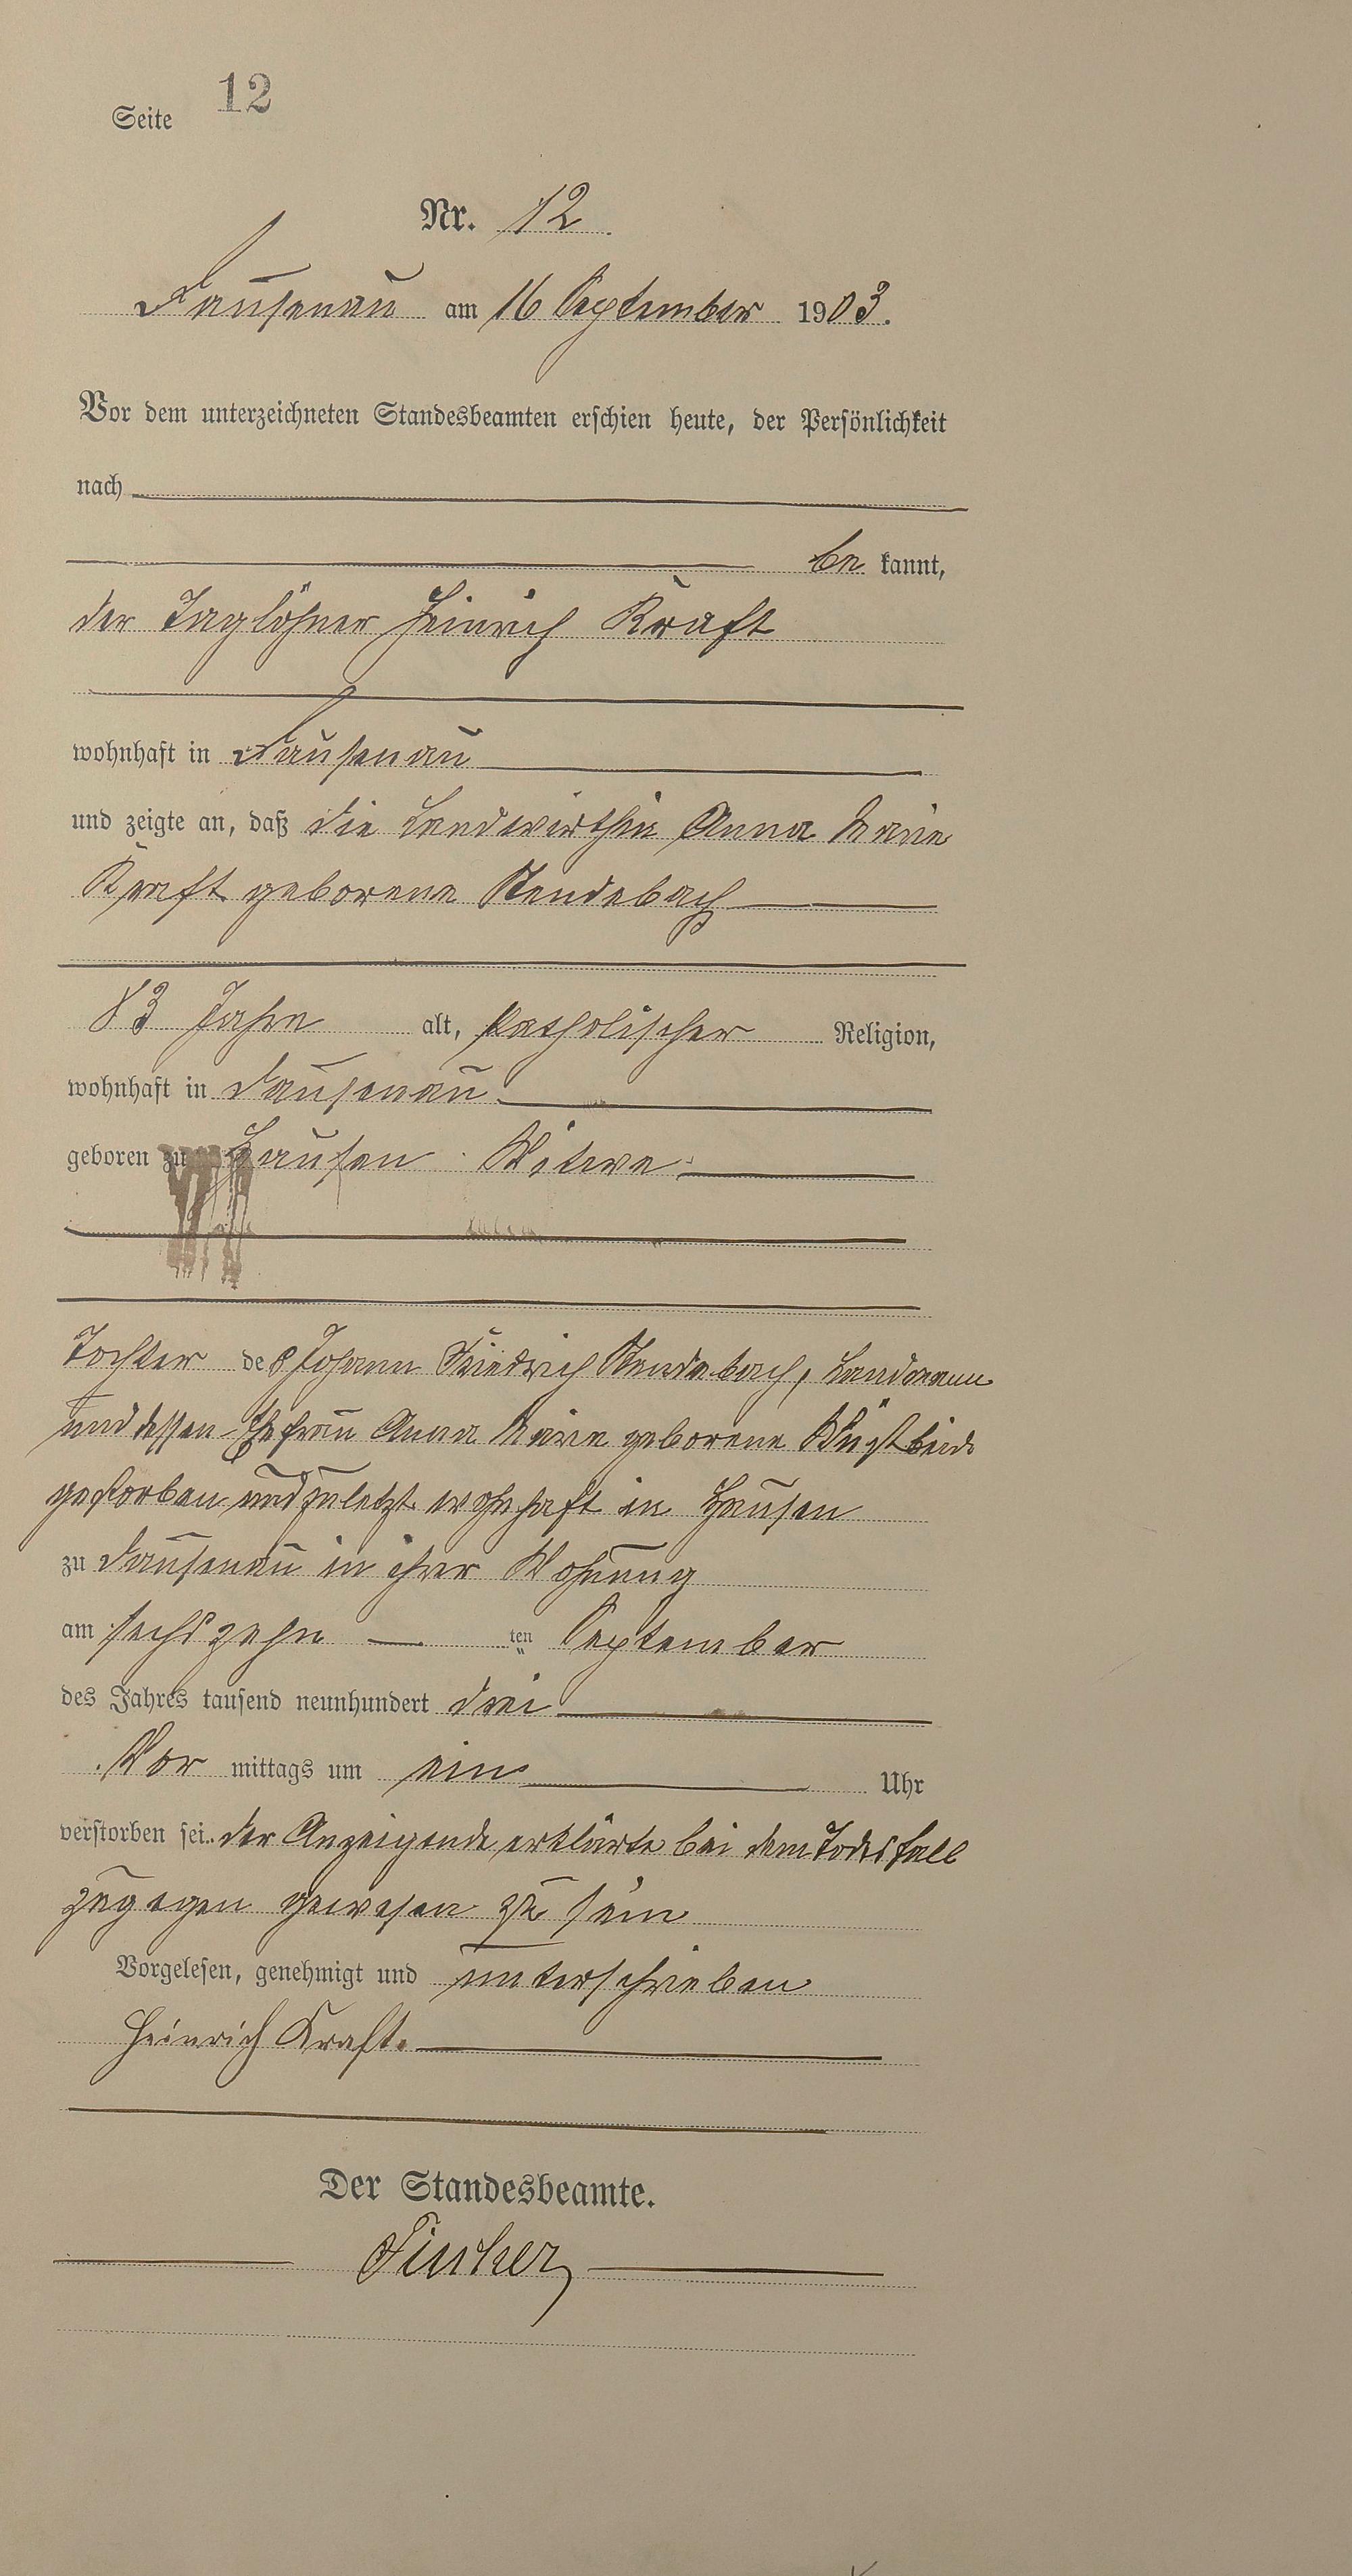 Seite 12
Nr. 12
Dausenau am 16 September 1903.
Vor dem unterzeichneten Standesbeamten erschien heute, der Persönlichkeit
nach
be kannt,
der Taglöhner Heinrich Kraft
wohnhaft in Dausenau
und zeigte an, daß die Landwirthin Anna Marie
Kraft geborene Rendebach
83 Jahre alt, katholischer Religion,
wohnhaft in Dausenau
geboren zu Hausen Witwe
Tochter des Johann Friedrich Rendebach, Landmann
und dessen Ehefrau Anna Marie geborene
gestorben und zuletzt wohnhaft in Hausen
zu Dausenau in ihrer Wohnung
am sechszehn ten September
des Jahres tausend neunhundert drei
Vor mittags um ein Uhr
verstorben sei. der Anzeigende erklärte bei dem Todesfall
zugegen gewesen zu sein
Vorgelesen, genehmigt und unterschrieben
Heinrich Kraft.
Der Standesbeamte.